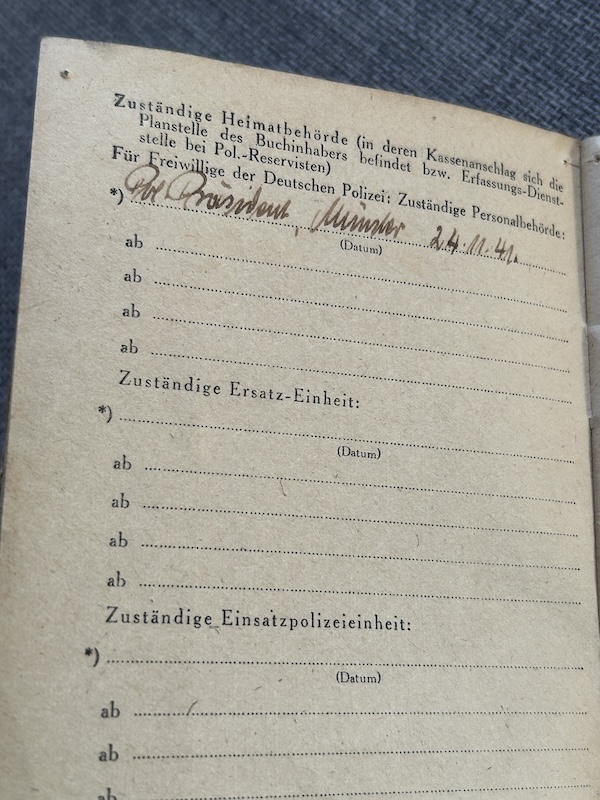 Zuständige Heimatbehörde (in deren Kassenanschlag sich die
Planstelle des Buchinhabers befindet bzw. Erfassungs-Dienst-
stelle bei Pol.-Reservisten)
Für Freiwillige der Deutschen Polizei: Zuständige Personalbehörde:
*) Präsident, Münster 24.11.41.
(Datum)
ab
ab
ab
ab
Zuständige Ersatz-Einheit:
*)
(Datum)
ab
ab
ab
ab
Zuständige Einsatzpolizeieinheit:
*)
(Datum)
ab
ab
ab